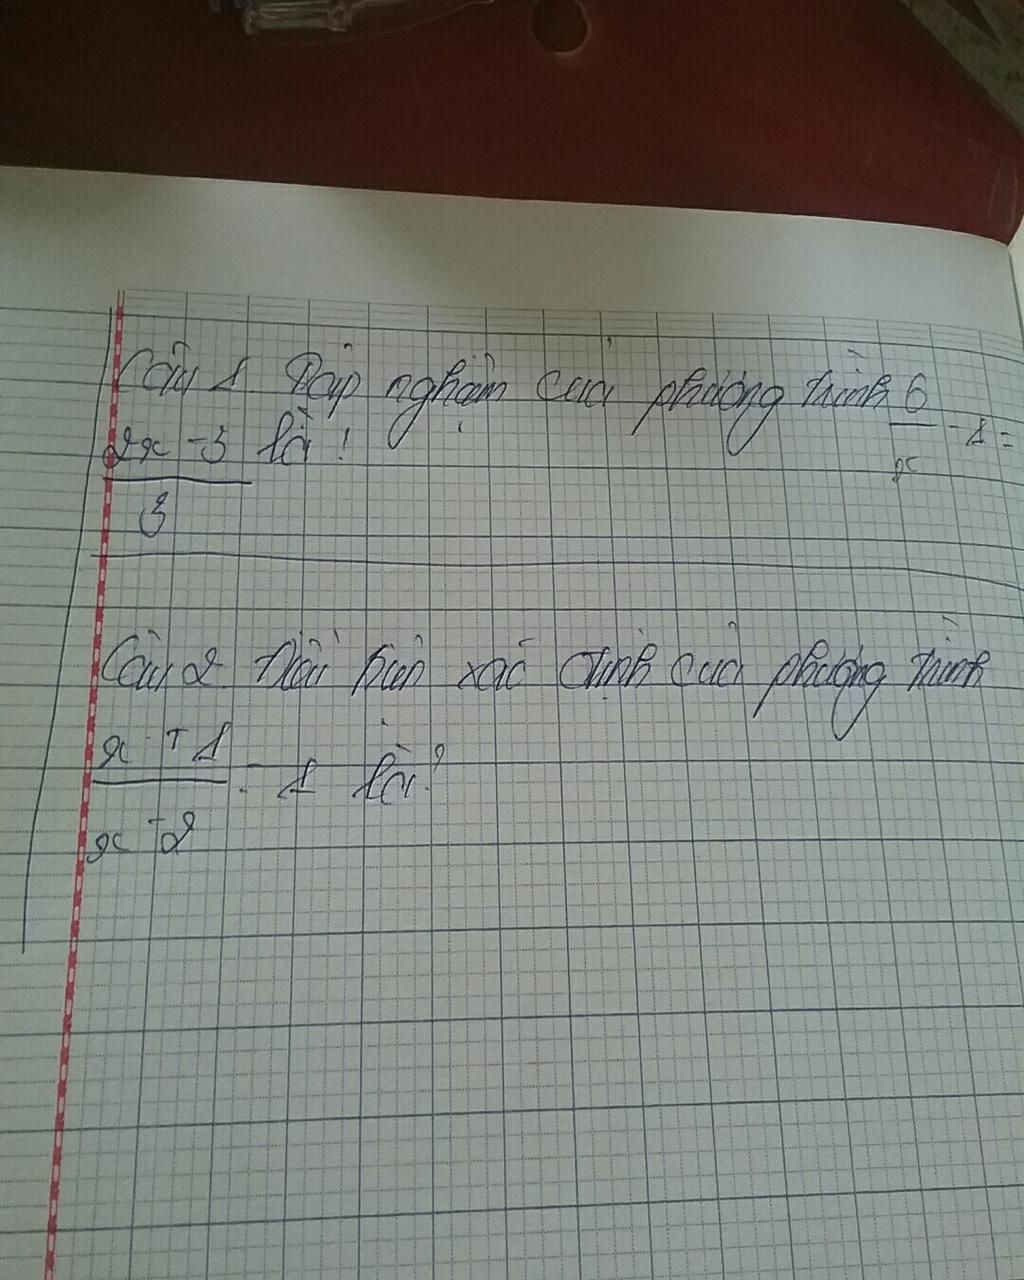 Câu 1 Tập nghiệm của phương trình 6/x - 1 =
2x - 3 / 3 là !
Câu 2 Điều kiện xác định của phương trình
x + 1 / x - 2 = 1 là?